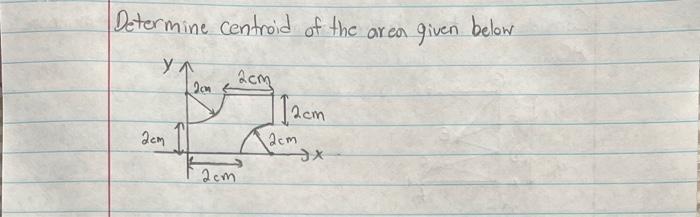 Determine centroid of the area given below
y
2cm
2cm
2cm
2cm
2cm
x
2cm